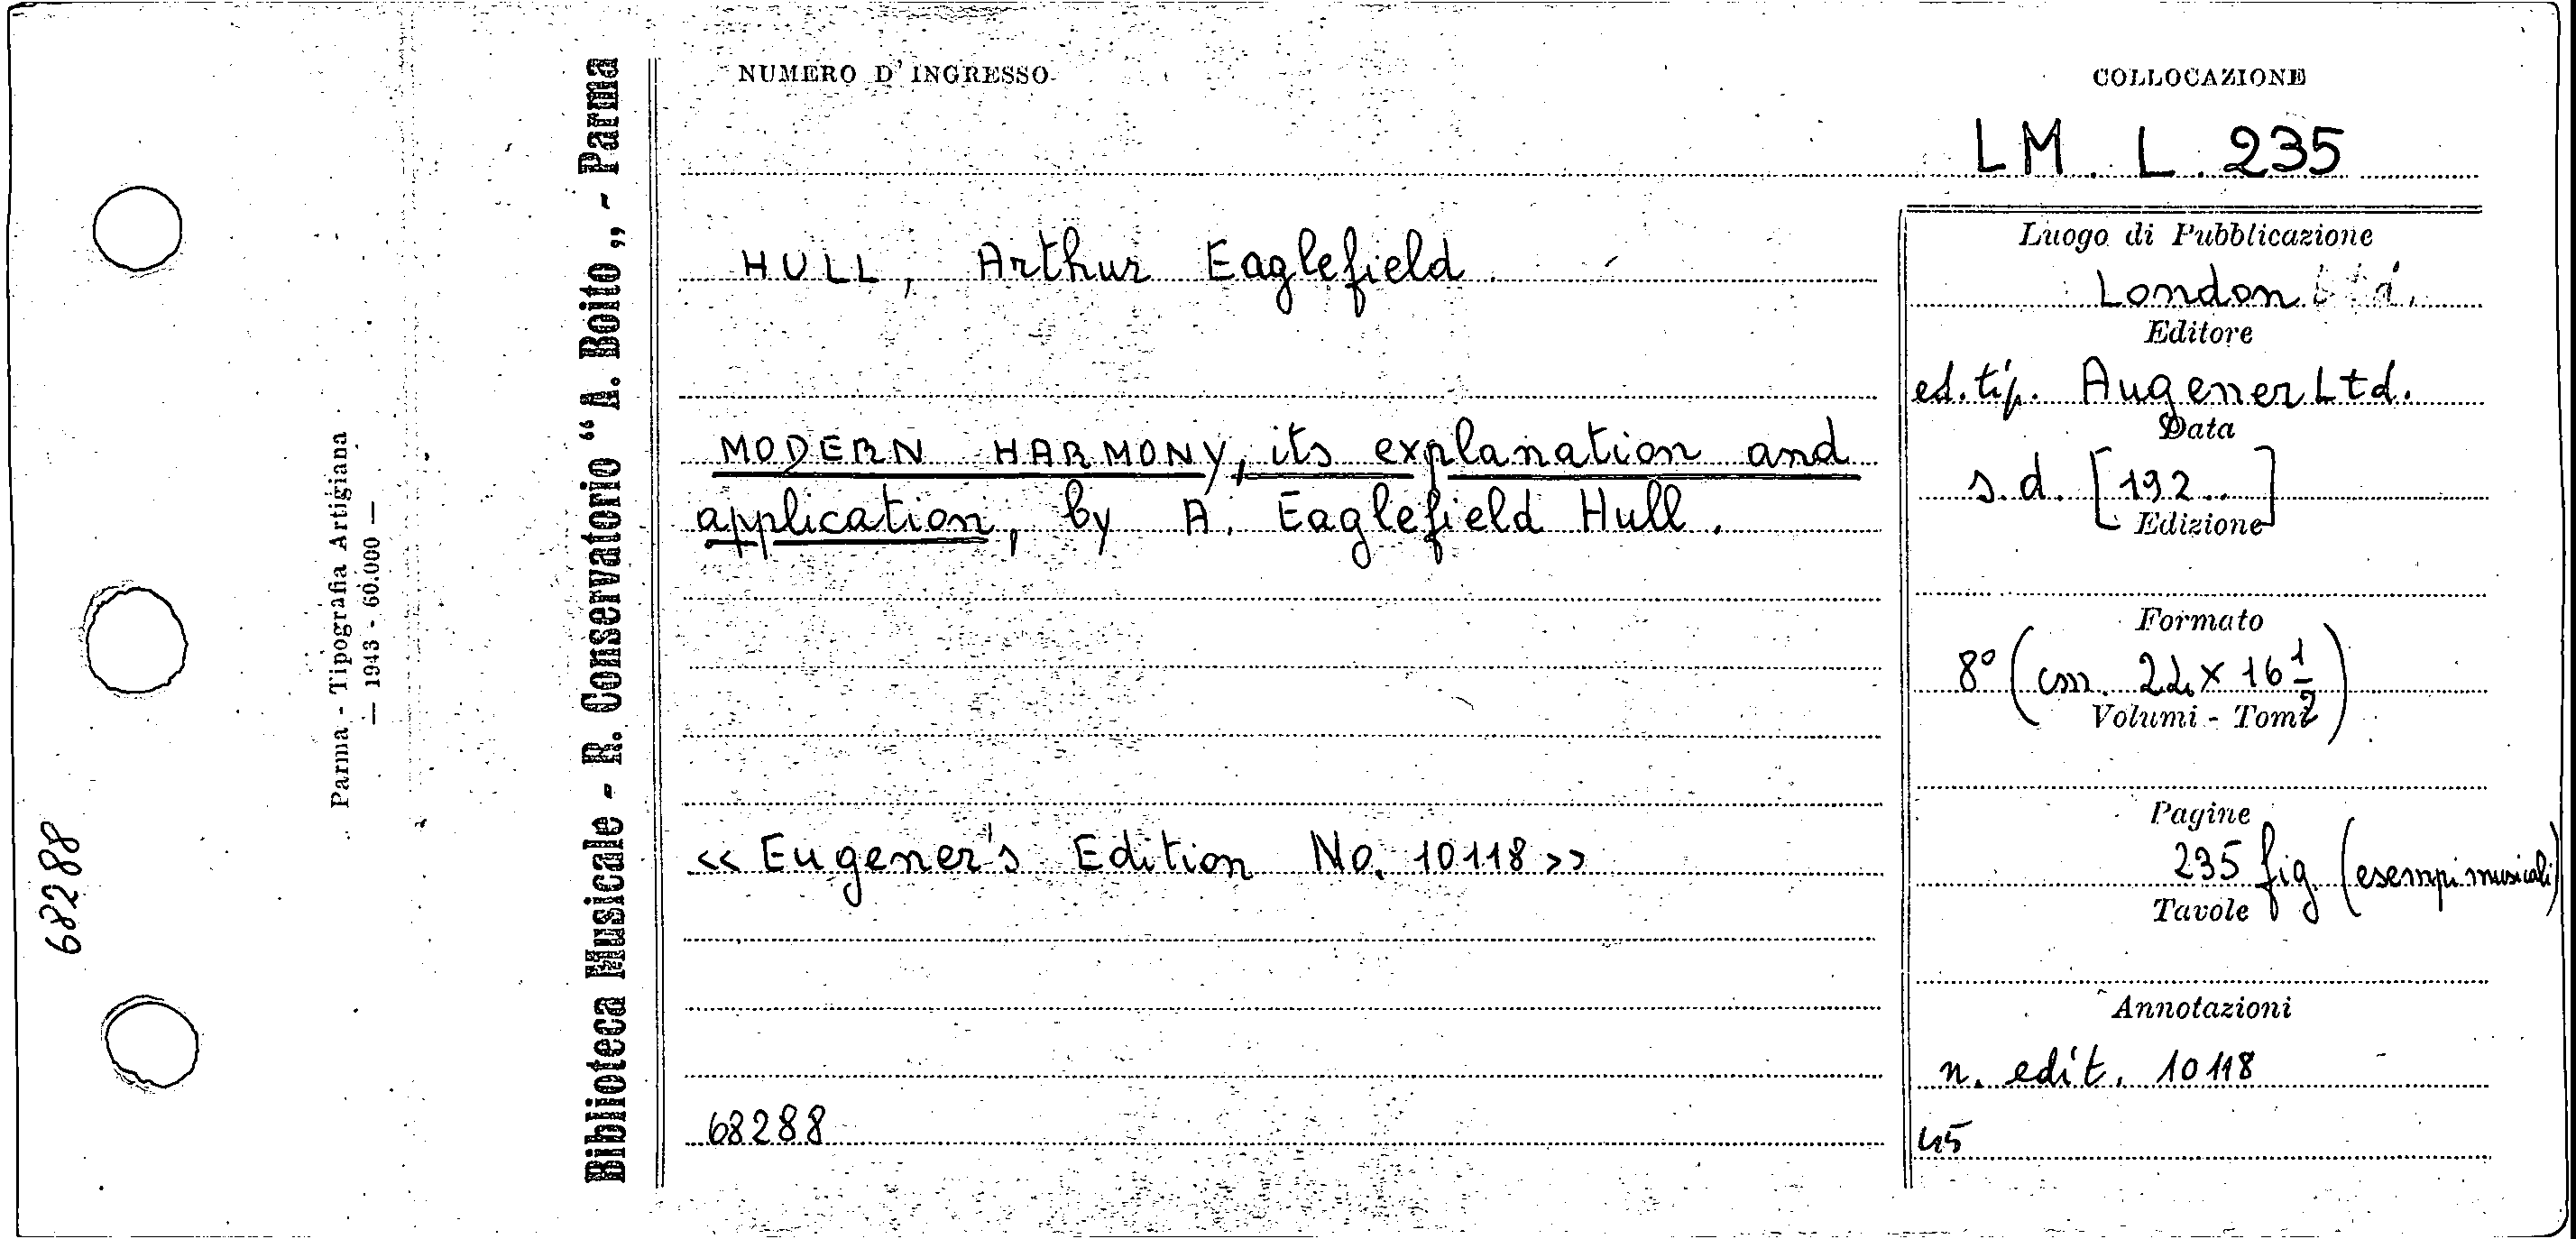 NUMERO D'INGRESSO
COLLOCAZIONE
LM. L. 235
HULL, Arthur Eaglefield
MODERN HARMONY, its explanation and
application, by A. Eaglefield Hull.
<< Eugener's Edition No. 10118 >>
68288
Luogo di Pubblicazione
London Ltd.
Editore
ed. tip. Augener Ltd.
Data
s.d. [192..]
Edizione
Formato
8° (cm. 22 x 16 1/2)
Volumi - Tomi
Pagine
235 fig (esempi musicali)
Tavole
Annotazioni
n. edit. 10118
45
Biblioteca Musicale - R. Conservatorio “A. Boito„ - Parma
Parma - Tipografia Artigiana
— 1943 - 60.000 —
68288